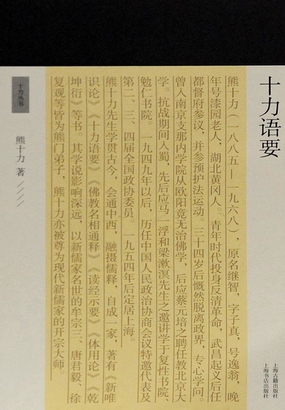 十力语要
十力丛书
熊十力 著
熊十力(一八八五—一九六八),原名继智,字子真,号逸翁,晚
年号漆园老人,湖北黄冈人。青年时代投身反清革命,武昌起义后任
都督府参议,并参预护法运动。三十四岁后慨然脱离政界,专心学问,
曾入南京支那内学院从欧阳竟无治佛学,后应蔡元培之聘任教北京大
学。抗战期间入蜀,先后应马一浮和梁漱溟先生之邀讲学于复性书院、
勉仁书院。一九四九年以后,历任中国人民政治协商会议特邀代表及
第二、三、四届全国政协委员。一九五四年后定居上海。
熊十力先生学贯古今,会通中西,融摄儒释,自成一家,著有《新唯
识论》《十力语要》《佛教名相通释》《读经示要》《体用论》《乾
坤衍》等书,其学说影响深远,以新儒家闻名的牟宗三、唐君毅、徐
复观等皆为熊门弟子,熊十力亦被尊为现代新儒家的开宗大师。
上海古籍出版社
上海书店出版社